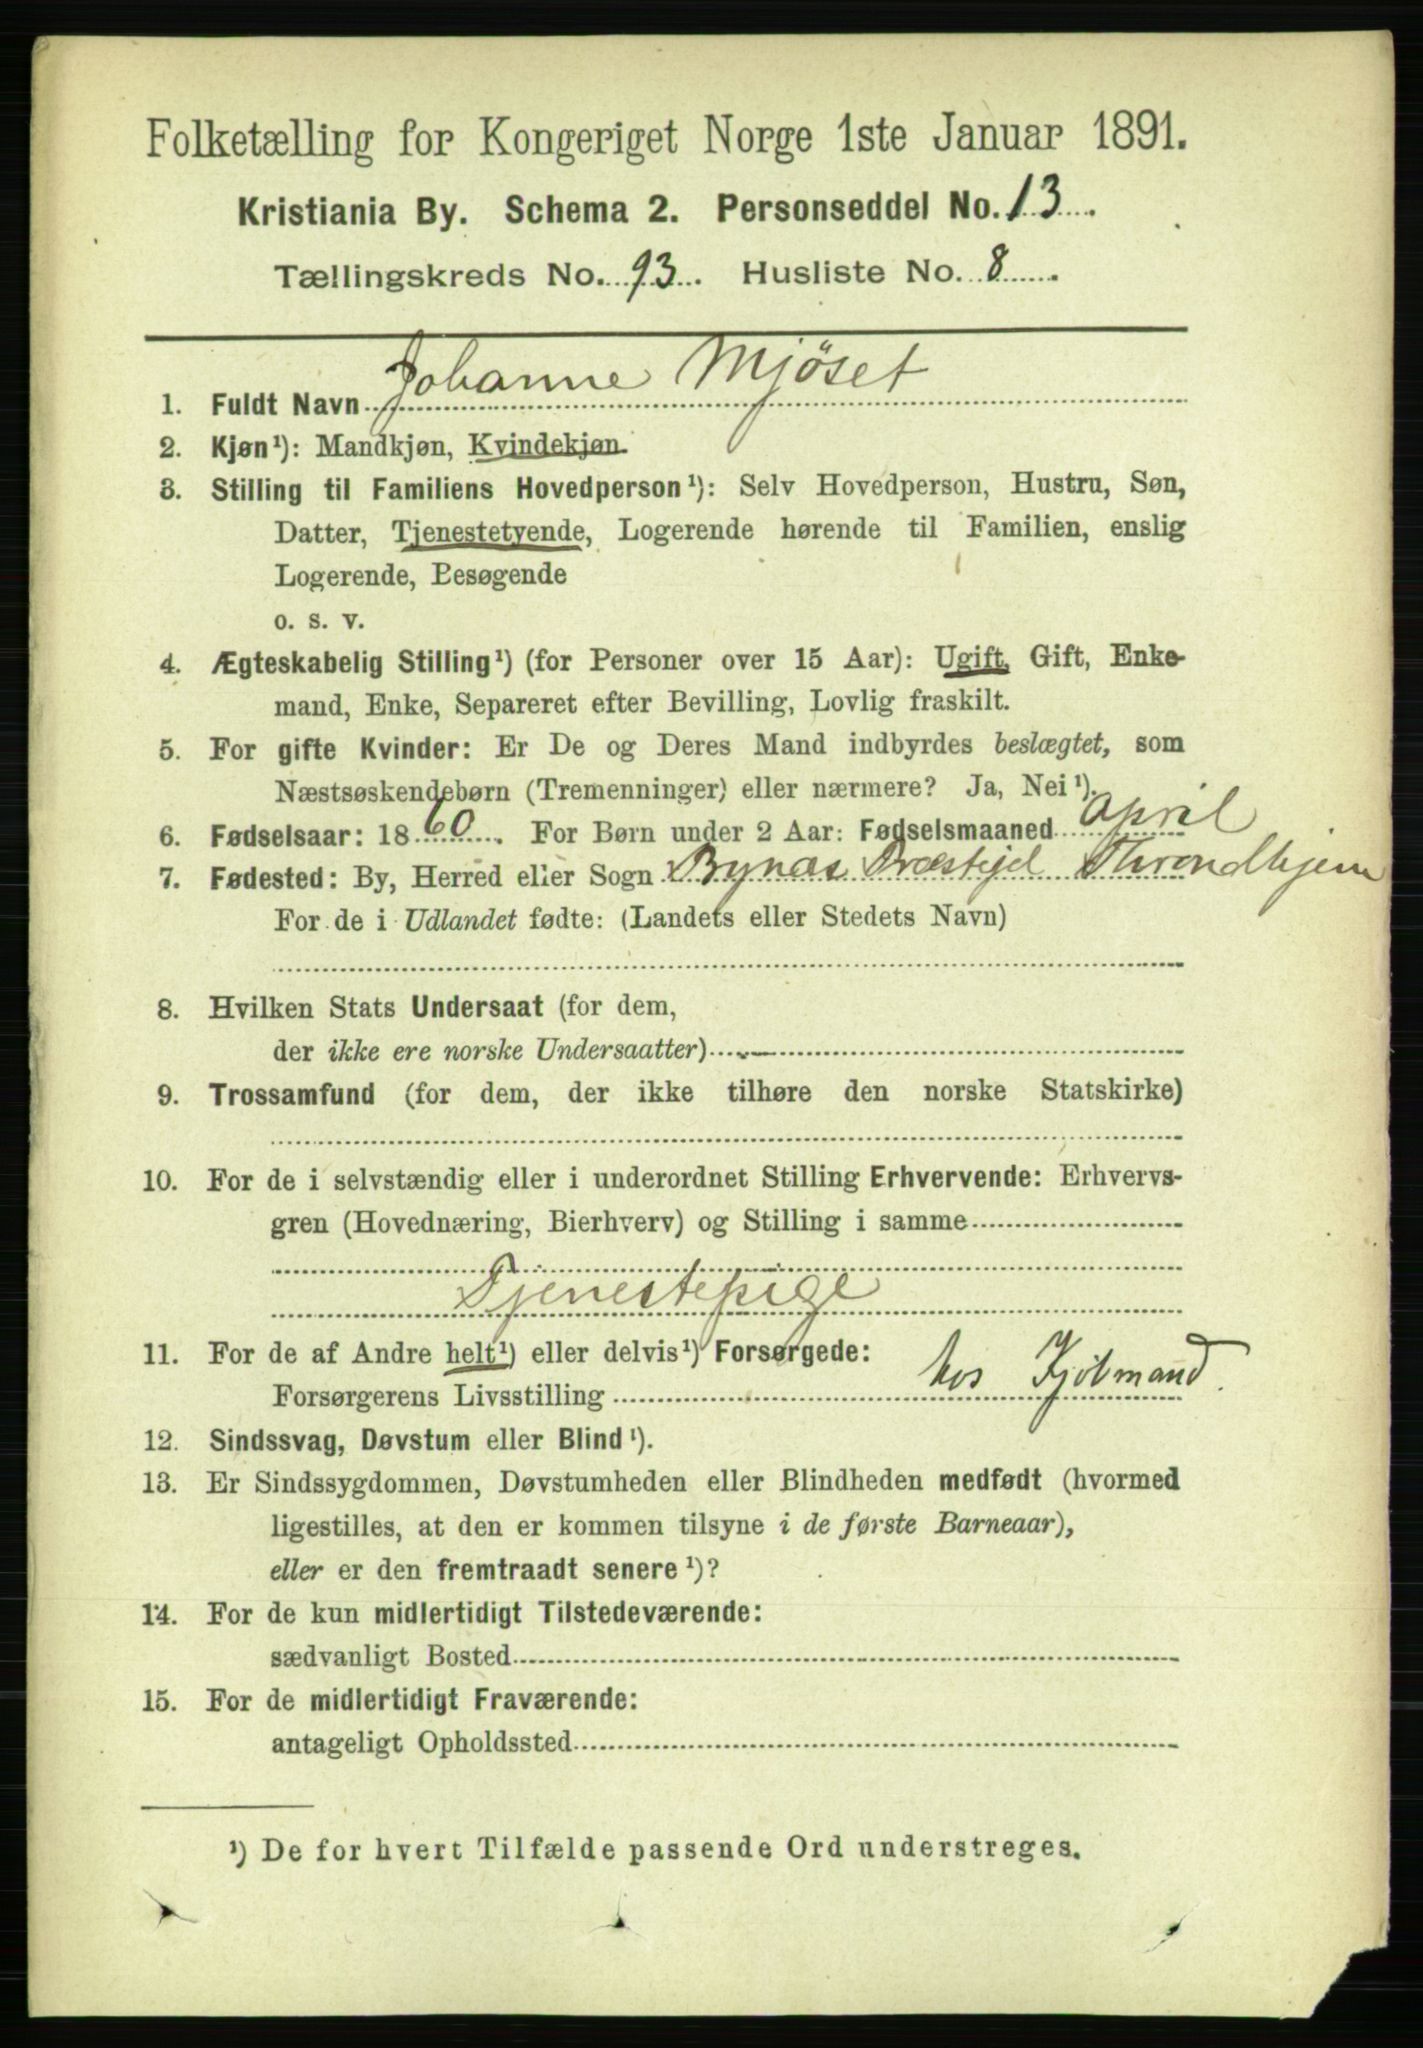 Folketælling for Kongeriget Norge 1ste Januar 1891.
Kristiania By. Schema 2. Personseddel No. 13.
Tællingskreds No. 93. Husliste No. 8.
1. Fuldt Navn Johanne Mjöset
2. Kjøn¹): Mandkjøn, Kvindekjøn.
3. Stilling til Familiens Hovedperson¹): Selv Hovedperson, Hustru, Søn,
Datter, Tjenestetyende, Logerende hørende til Familien, enslig
Logerende, Besøgende
o. s. v.
4. Ægteskabelig Stilling¹) (for Personer over 15 Aar): Ugift, Gift, Enke-
mand, Enke, Separeret efter Bevilling, Lovlig fraskilt.
5. For gifte Kvinder: Er De og Deres Mand indbyrdes beslægtet, som
Næstsøskendebørn (Tremenninger) eller nærmere? Ja, Nei¹).
6. Fødselsaar: 1860. For Børn under 2 Aar: Fødselsmaaned April
7. Fødested: By, Herred eller Sogn Bynæs Præstejel Throndhjem
For de i Udlandet fødte: (Landets eller Stedets Navn)
8. Hvilken Stats Undersaat (for dem,
der ikke ere norske Undersaatter)
9. Trossamfund (for dem, der ikke tilhøre den norske Statskirke)
10. For de i selvstændig eller i underordnet Stilling Erhvervende: Erhvervs-
gren (Hovednæring, Bierhverv) og Stilling i samme
Tjenestepige
11. For de af Andre helt¹) eller delvis¹) Forsørgede:
Forsørgerens Livsstilling hos Kjöbmand.
12. Sindssvag, Døvstum eller Blind¹).
13. Er Sindssygdommen, Døvstumheden eller Blindheden medfødt (hvormed
ligestilles, at den er kommen tilsyne i de første Barneaar),
eller er den fremtraadt senere¹)?
14. For de kun midlertidigt Tilstedeværende:
sædvanligt Bosted
15. For de midlertidigt Fraværende:
antageligt Opholdssted
¹) De for hvert Tilfælde passende Ord understreges.